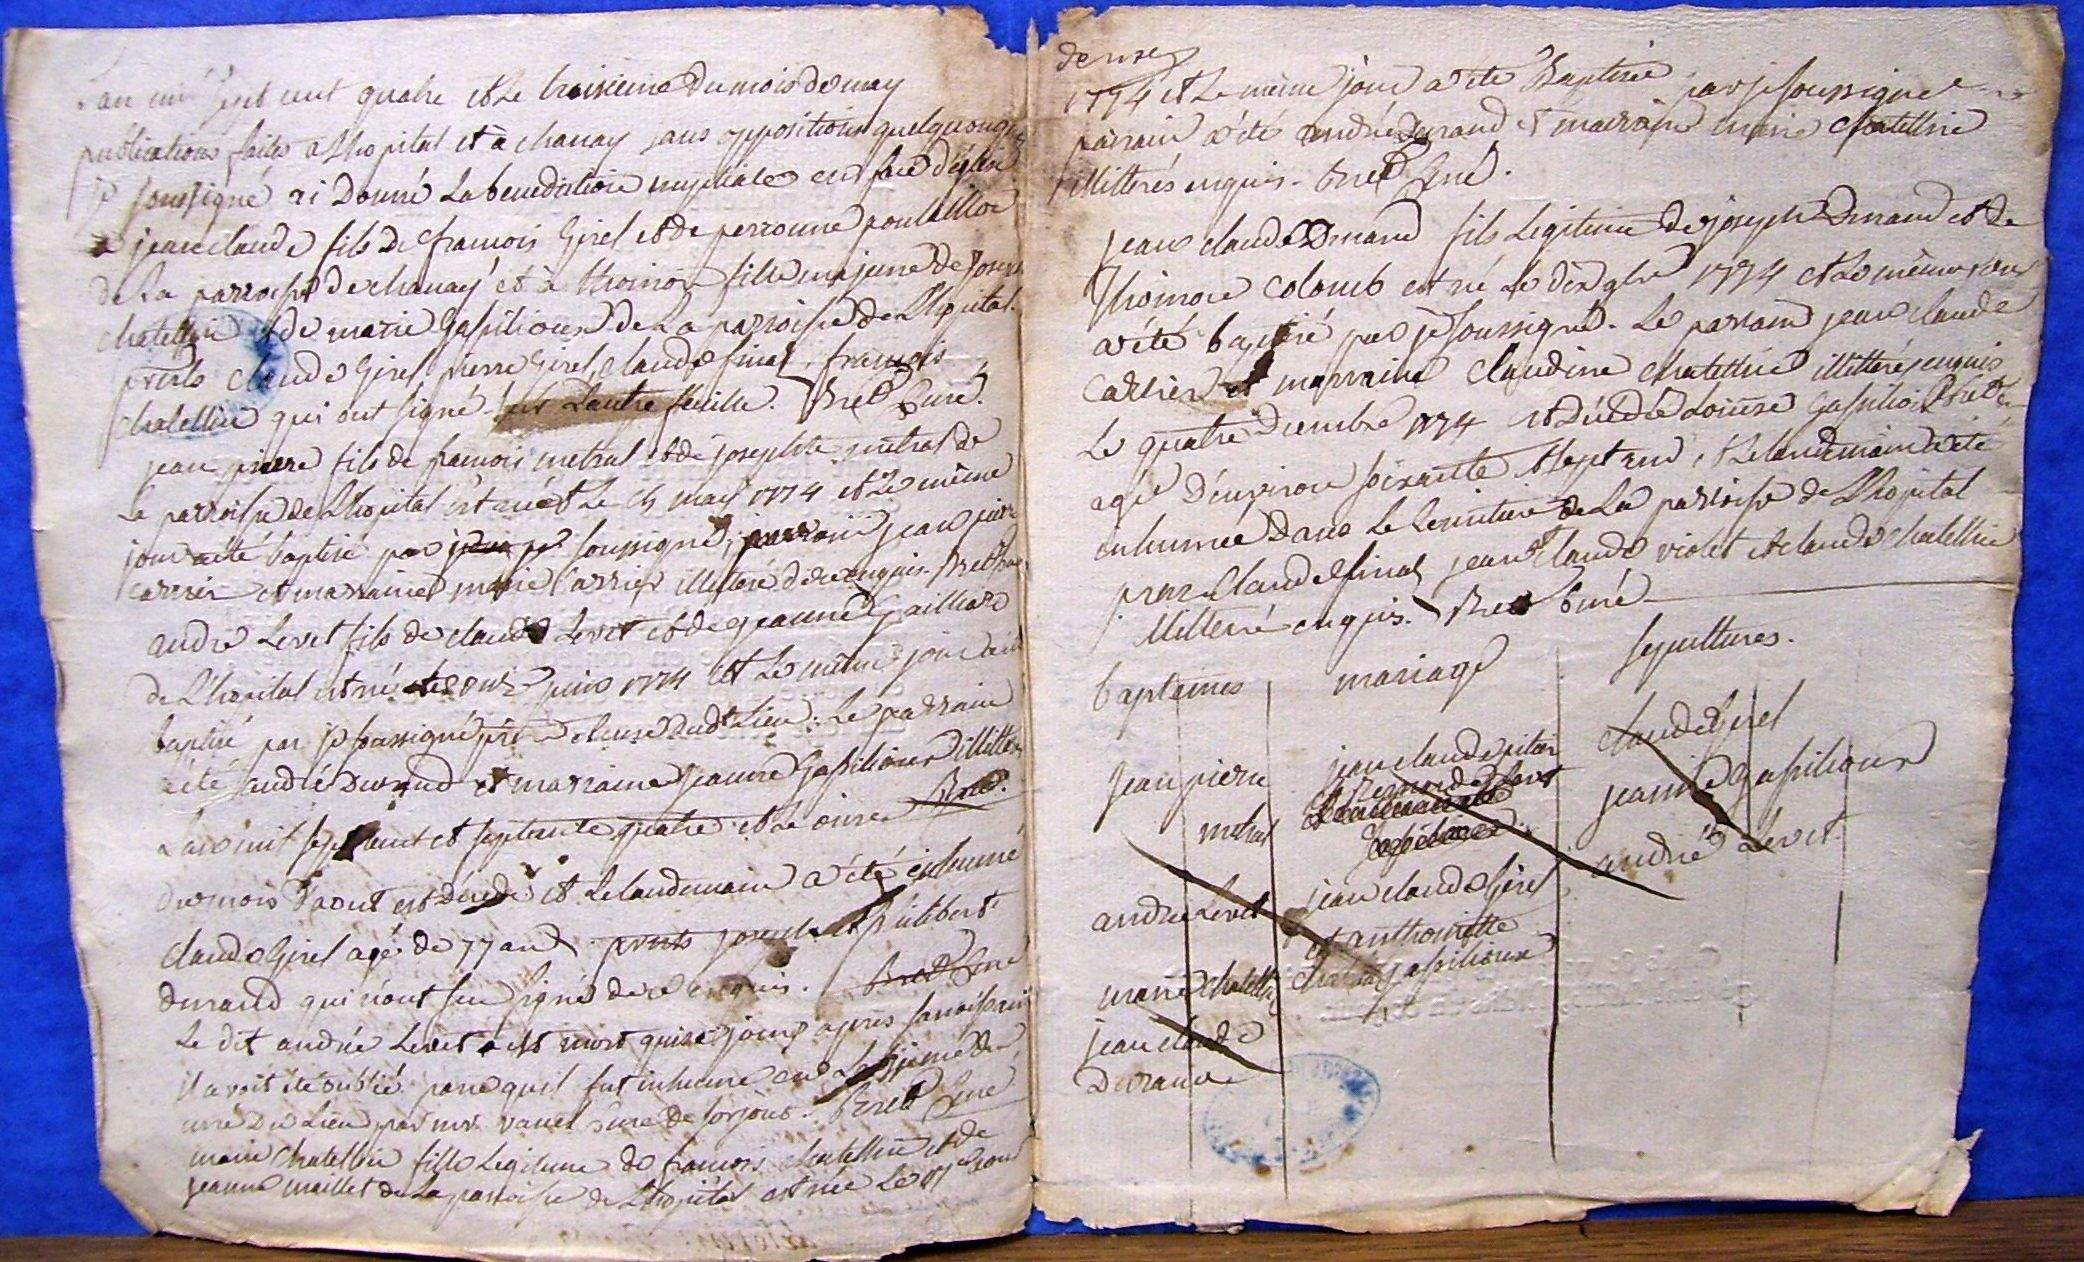 L'an mil sept cent quatre et le troisieme du mois de may
publications faites a Lhopital et à chanay sans oppositions quelquonque
je soussigné ai Donné La benediction nuptiale en face d'eglise
a jean claude fils De francois Girel et de perronne
de La parroisse de chanay et à thoinon fille majeure de Joseph
chatellin et de marie Gassilioux de La parroisse de Lhopital.
presents claude Girel pierre Girel, claude final, francois
chatellin qui ont signé sur Lautre feuille. Bret Curé.
jean pierre fils de francois metral et de josephte metral de
La parroisse de Lhopital est né Le may 1774 et Le même
jour a été baptisé par soussigné, parrain jean pierre
carrier et marraine marie Carrier illitteré de ce enquis. Bret Curé
andré Levet fils de claude Levet et de jeanne Gailliard
de L'hopital est né Le onze juin 1774 et Le même jour a été
baptisé par je soussigné dud Lieu. Le parrain
a été andré Durand et marraine jeanne Gassilioux illitteré
L'an mil sept cent et septente quatre et Le onze Bret.
du mois d'aout est Décédé et Le landemain a été inhumé
claude Girel agé de 77 ans presents joseph et philibert
durand qui n'ont seu signé de ce enquis. Bret Curé
Le dit andré Levet est mort quinze jours apres sa naissance
il a voit été oublié parce quil fut inhumé en
curé Du Lieu par mr vanel Curé de sorjoux. Bret Curé
marie chatellin fille Legitime de francois chatellin et de
jeanne maillet de La parroisse de Lhopital est née Le aout
1774 et Le même jour a été Baptisée par je soussigné
parrain a été andré Durand et marraine marie chatellin
illitterés enquis. Bret Curé.
jean claude Durand fils Legitime de joseph Durand et de
Thoinon Colomb est né Le dix 9bre 1774 et Le même jour
a été baptisé par je soussigné. Le parrain jean claude
Carrier et marraine Claudine chatellin illitteré enquis
Le quatre Decembre 1774 est Décédée Gassilioux Bret
agé D'environ soixante et sept ans, et Le landemain a été
inhumée Dans Le cemitiere de La parroisse de Lhopital
claude final jean claude violet et claude chatellin
illitteré enquis. Bret Curé
baptaimes mariage sepulttures.
jean pierre metral
andré Levet
marie chatellin
jean claude Durand
jean claude
jean claude Girel
et anthoinette
Gassilioux
claude Girel
jeanne Gassilioux
andré Levet.